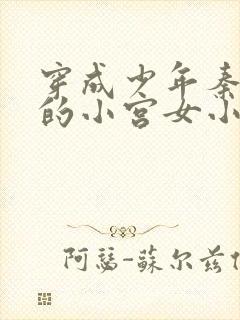 穿成少年秦
的小宫女小
阿瑟-蘇尔兹